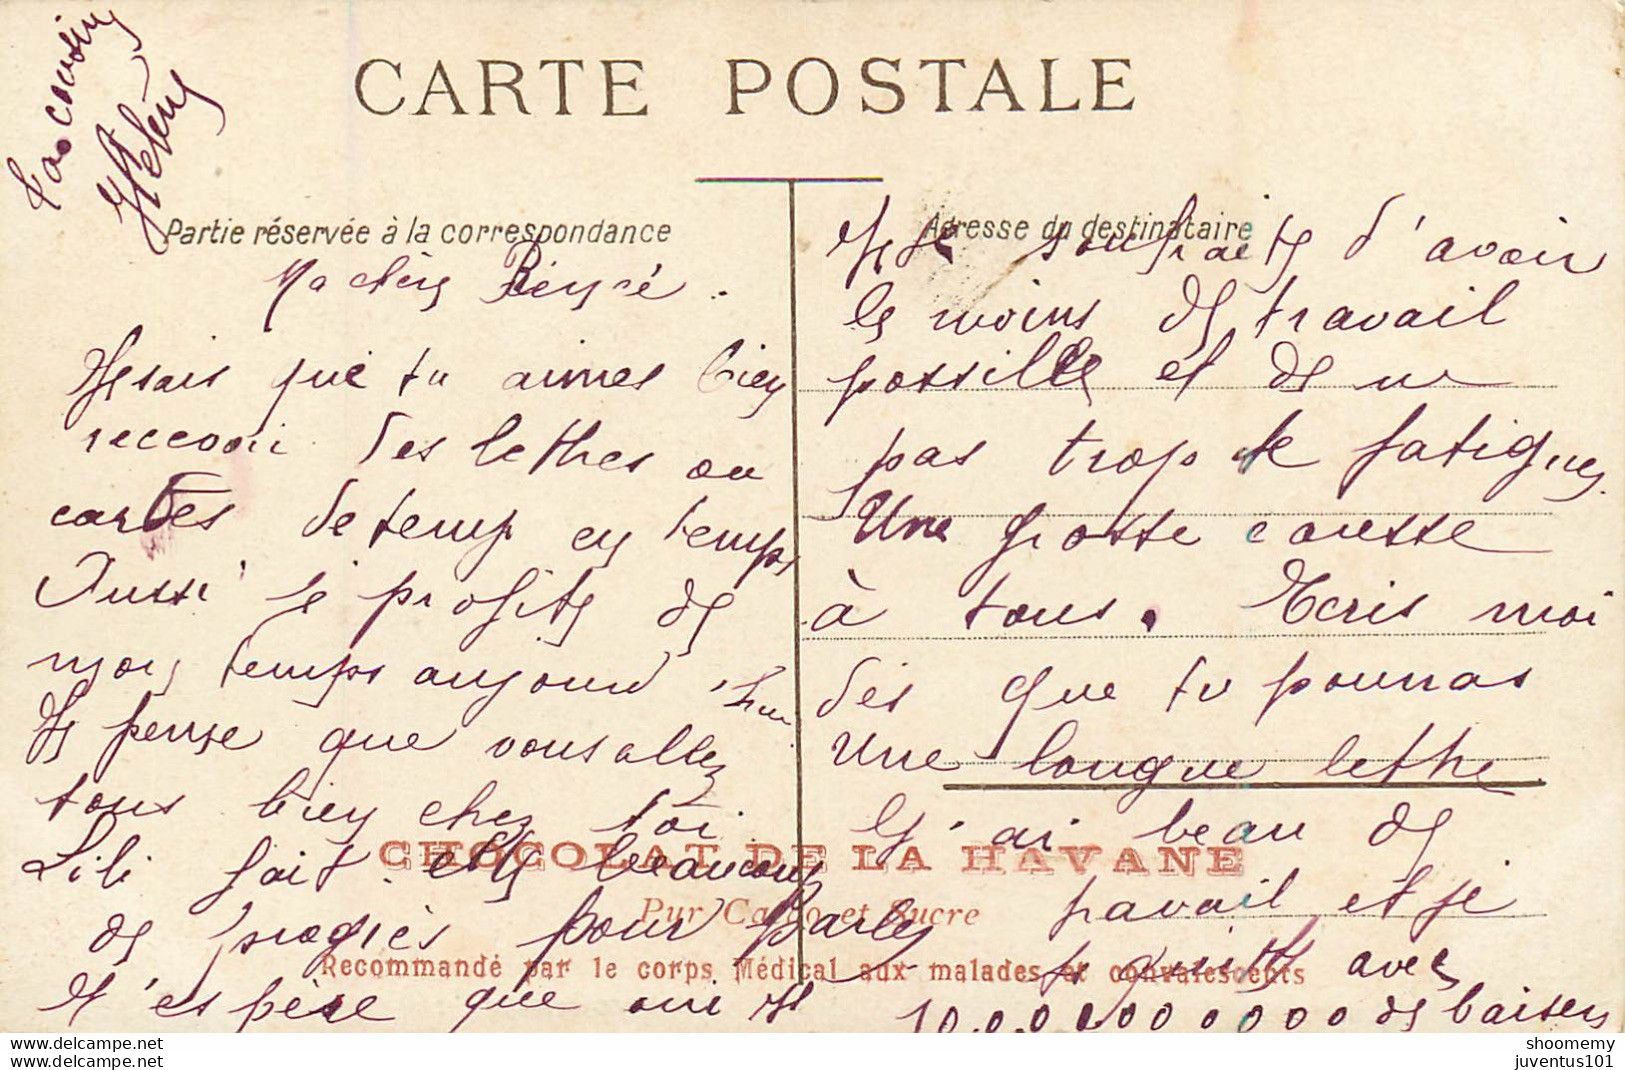 CARTE POSTALE
Ta cousine
Hélène
Partie réservée à la correspondance
Adresse du destinataire
Ma chère
Je sais que tu aimes bien
recevoir des lettres ou
cartes de temps en temps
Aussi je profite de
mon temps aujourd'hui
Je pense que vous allez
tous bien chez toi
Lili fait elle beaucoup
de progrès pour parler
J'espère que oui Je
Je te souhaite d'avoir
le moins de travail
possible et de ne
pas trop te fatiguer
Une grosse caresse
à tous. Ecris moi
dès que tu pourras
une longue lettre
J'ai beau de
travail et je
te quitte avec
10.0.0.000000 de baisers
CHOCOLAT DE LA HAVANE
Pur Cacao et Sucre
Recommandé par le corps Médical aux malades et convalescents
Delcampe.net
shoomemy
juventus101